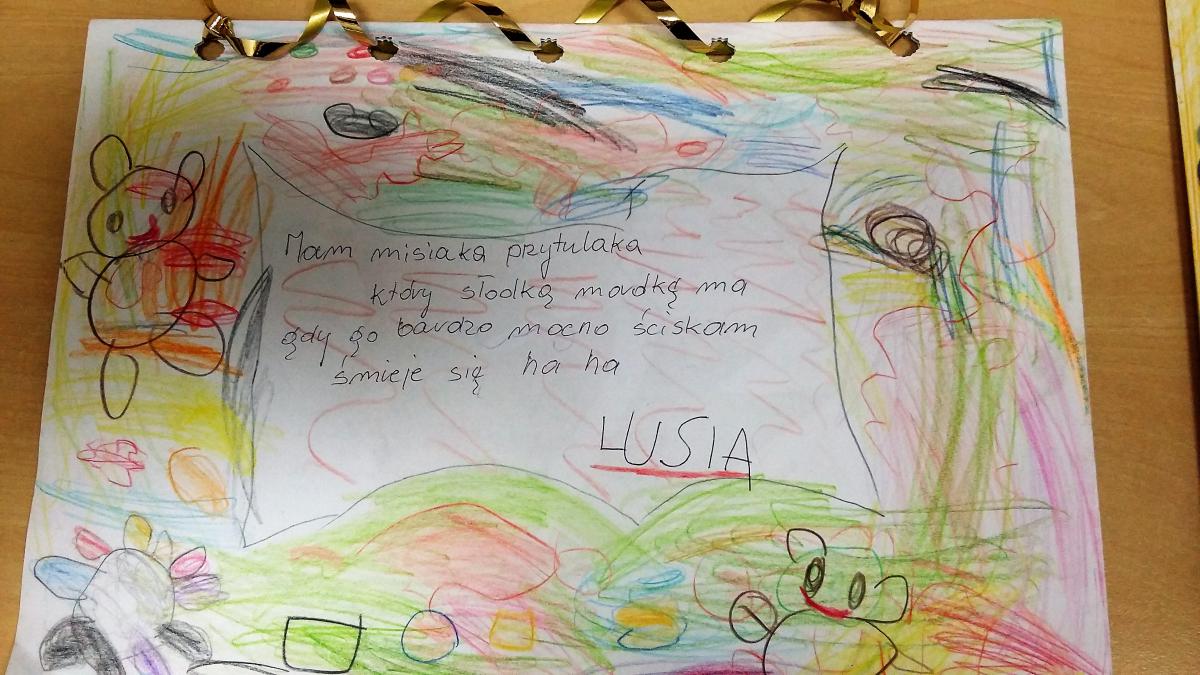 Mam misiaka przytulaka
który słodką mordkę ma
gdy go bardzo mocno ściskam
śmieje się ha ha
LUSIA